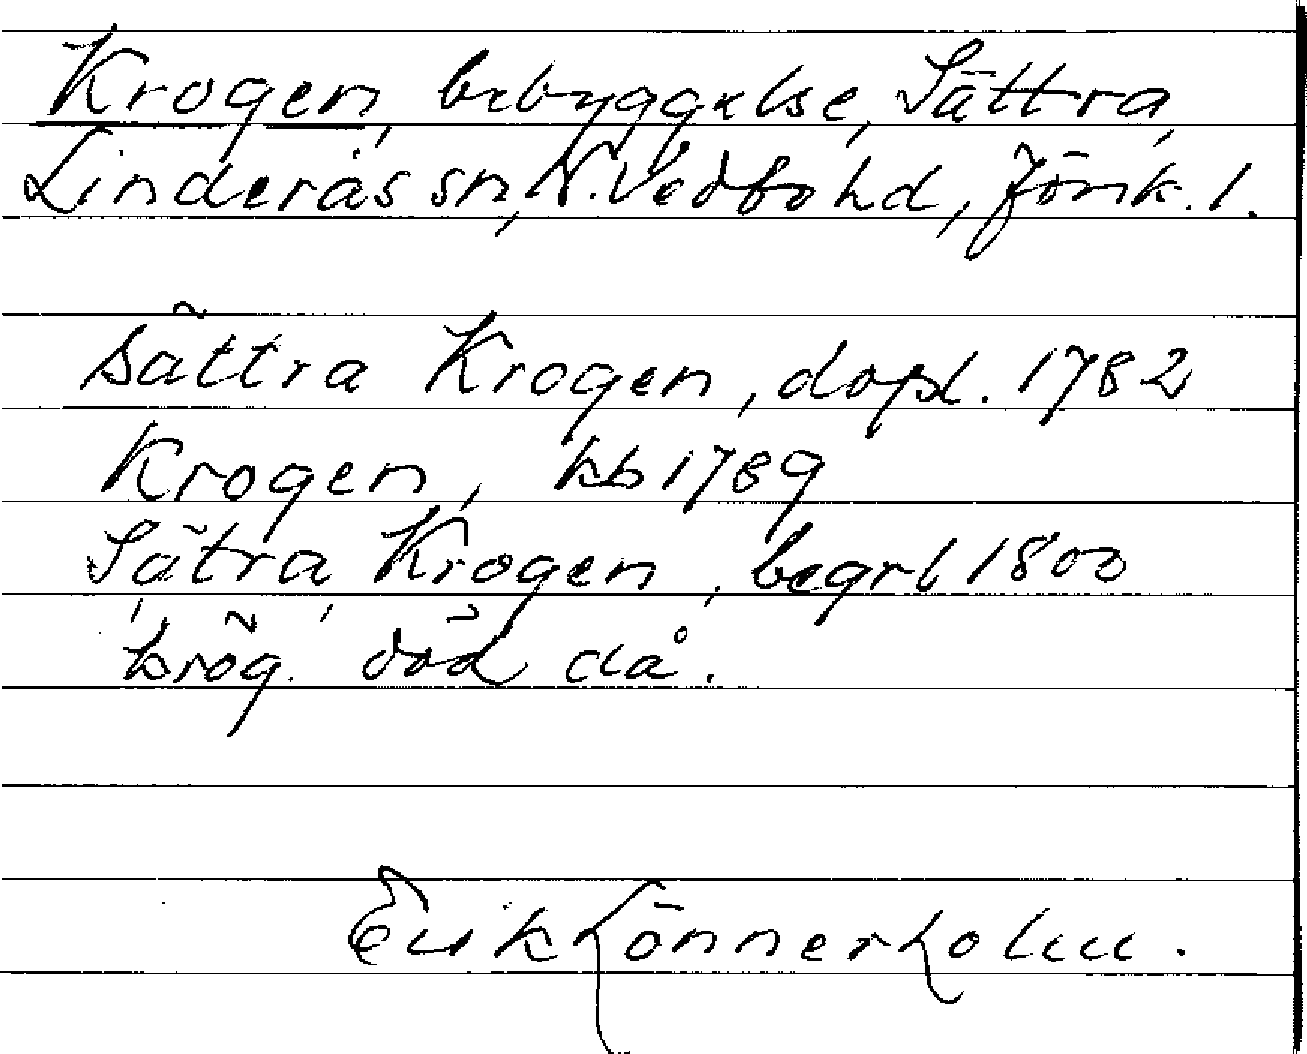 Krogen, bebyggelse, Sättra,
Linderås sn, N. Vedbo hd, Jönk. l.
Sättra Krogen, dopl. 1782
Krogen, hb 1789
Sätra, Krogen, begrl 1800
död då.
Erik Lönnerholm.